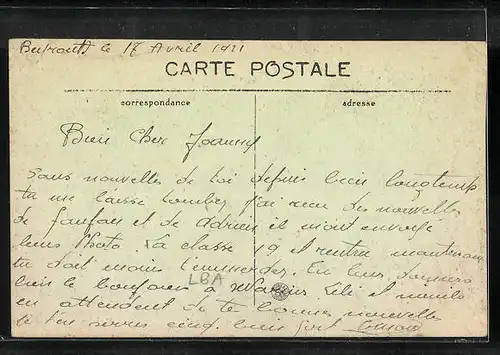 Beyrouth le 17 Avril 1921
CARTE POSTALE
correspondance
adresse
Bien cher Joanny
Sans nouvelles de toi depuis bien longtemps
tu me laisse tomber j'ai reçu des nouvelles
de et de Adrien il m'ont envoyé
leurs Photo. La classe 19 et rentré maintenant
tu doit moins t'emmerder. Tu leurs donnera
bien le bonjour à Lili et
en attendent de te bonnes nouvelle
je t'en serres cinq. bien fort
LBA